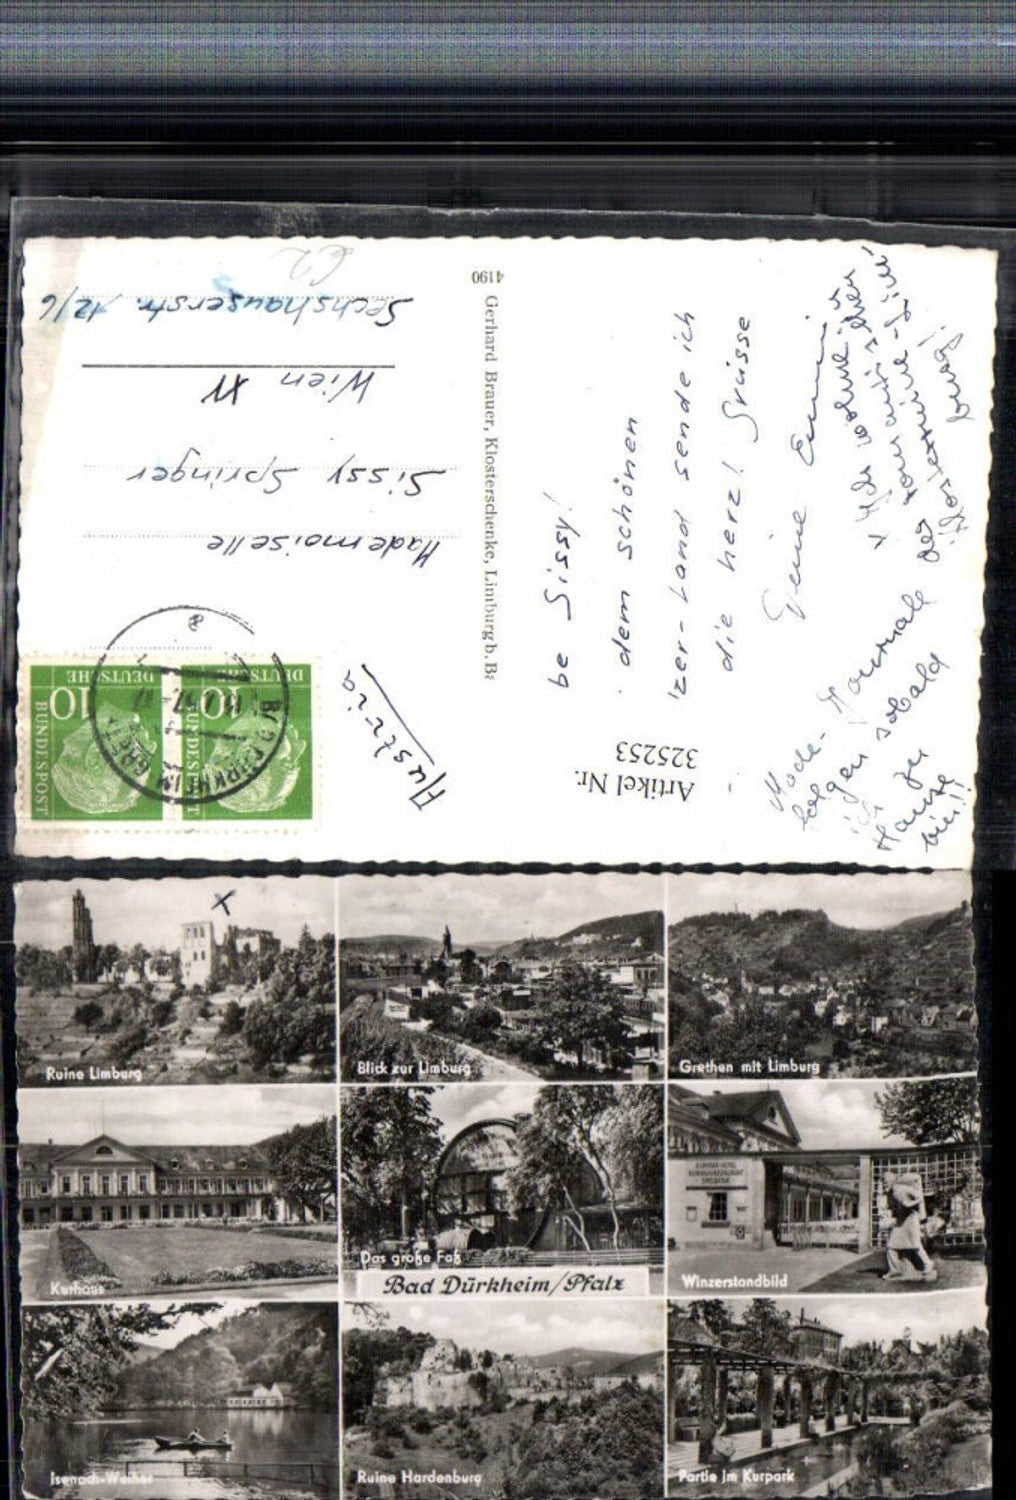 Sechshauserstr. 12/6
Wien XV
Sissy Springer
Mademoiselle
Austria
4190 Gerhard Brauer, Klosterschenke, Limburg b. Ba
DEUTSCHE
BUNDESPOST
10
DEUTSCHE
10
BUNDESPOST
BAD DÜRKHEIM
be Sissy!
dem schönen
lzer-Land sende ich
die herzl. Grüsse
Deine
Artikel Nr.
325253
Mode-Journale
folgen sobald
ich zu
Hause
bin!!
x
Ruine Limburg
Blick zur Limburg
Grethen mit Limburg
Kurhaus
Das große Faß
Winzerstandbild
Bad Dürkheim/Pfalz
Isenach-Weiher
Ruine Hardenburg
Partie im Kurpark